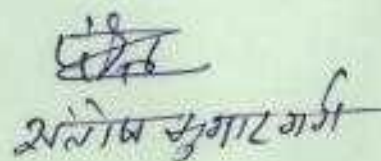 संतोष कुमार गर्ग